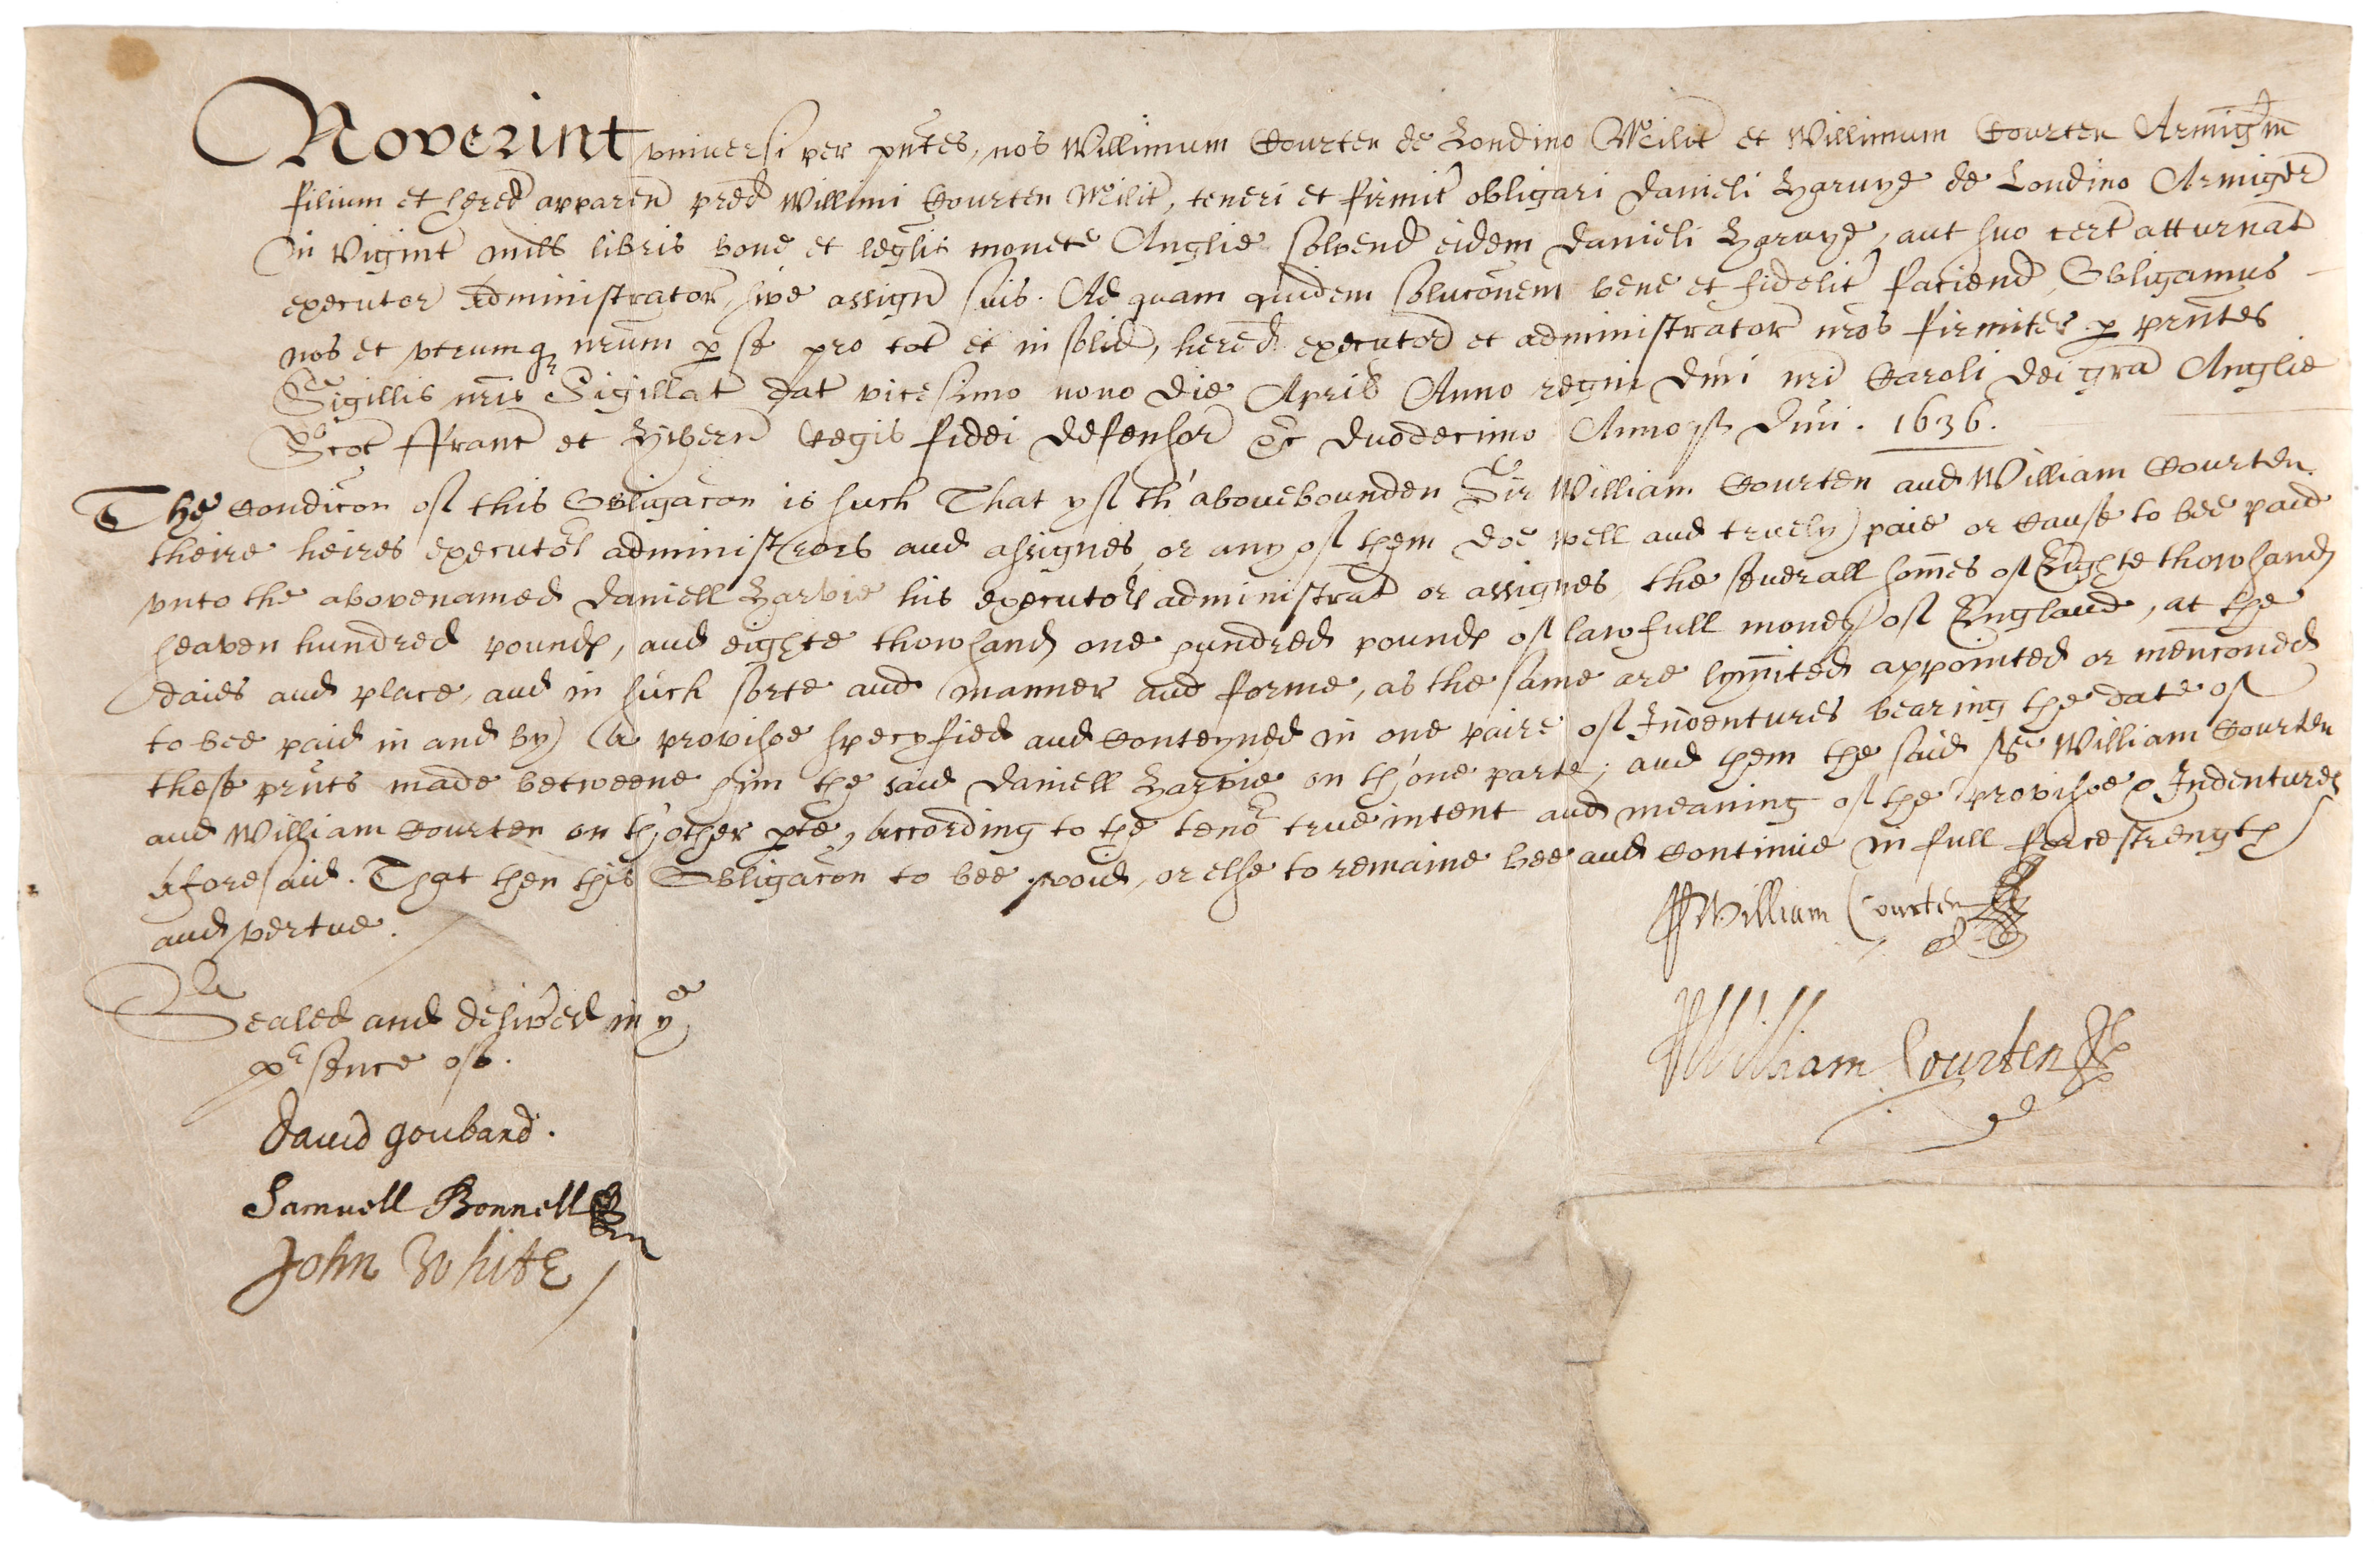 Noverint vniversi per pñtes, nos Willimum Courten de Londino Milit et Willimum Courten Armigm̃
filium et hered apparen pred Willimi Courten Milit, teneri et firmit obligari Danieli Harvye de Londino Armiger
In Vigint mill libris bone et leglis monete Anglie solvend eidem Danieli Harvye, aut suo cert atturnat
executor administrator, sive assign suis. Ad quam quidem soluc̃onem bene et fidelit faciend, Obligamus
nos et vtrumq nr̃um p se pro tot et in solid, hered executor et administrator nr̃os firmiter p pñtes
Sigillis nr̃is Sigillat dat vicesimo nono die Aprilis Anno regni Dñi nr̃i Caroli Dei gra Anglie
Scot ffranc et Hibern Regis fidei defensor &c Duodecimo Annoq Dñi. 1636.
The Condic̃on of this Obligac̃on is such That yf th'abovebounden Sir William Courten and William Courten
theire heires executors administrors and assignes or any of them doe well and truely paie or cause to bee paid
vnto the abovenamed Daniell Harvie his executors administrat or assignes the severall som̃es of Eighte thowsand
seaven hundred pounds, and eighte thowsand one hundred pounds of lawfull money of England, at the
daies and place, and in such sorte and manner and forme, as the same are lym̃ited appointed or menc̃oned
to bee paid in and by (a provisoe specyfied and conteyned in one paire of Indentures bearing the date of
these pñts made betweene him the said Daniell Harvie on th'one parte; and them the said Sr William Courten
and William Courten on th'other pte, according to the teno^r true intent and meaning of the provisoe & Indentures
aforesaid. That then this Obligac̃on to bee void, or else to remaine bee and continue in full force strength
and vertue.
William Courten
William Courten
Sealed and deliv'ed in y^e
p^rsence of.
David goubard.
Samuell Bonnell
John White